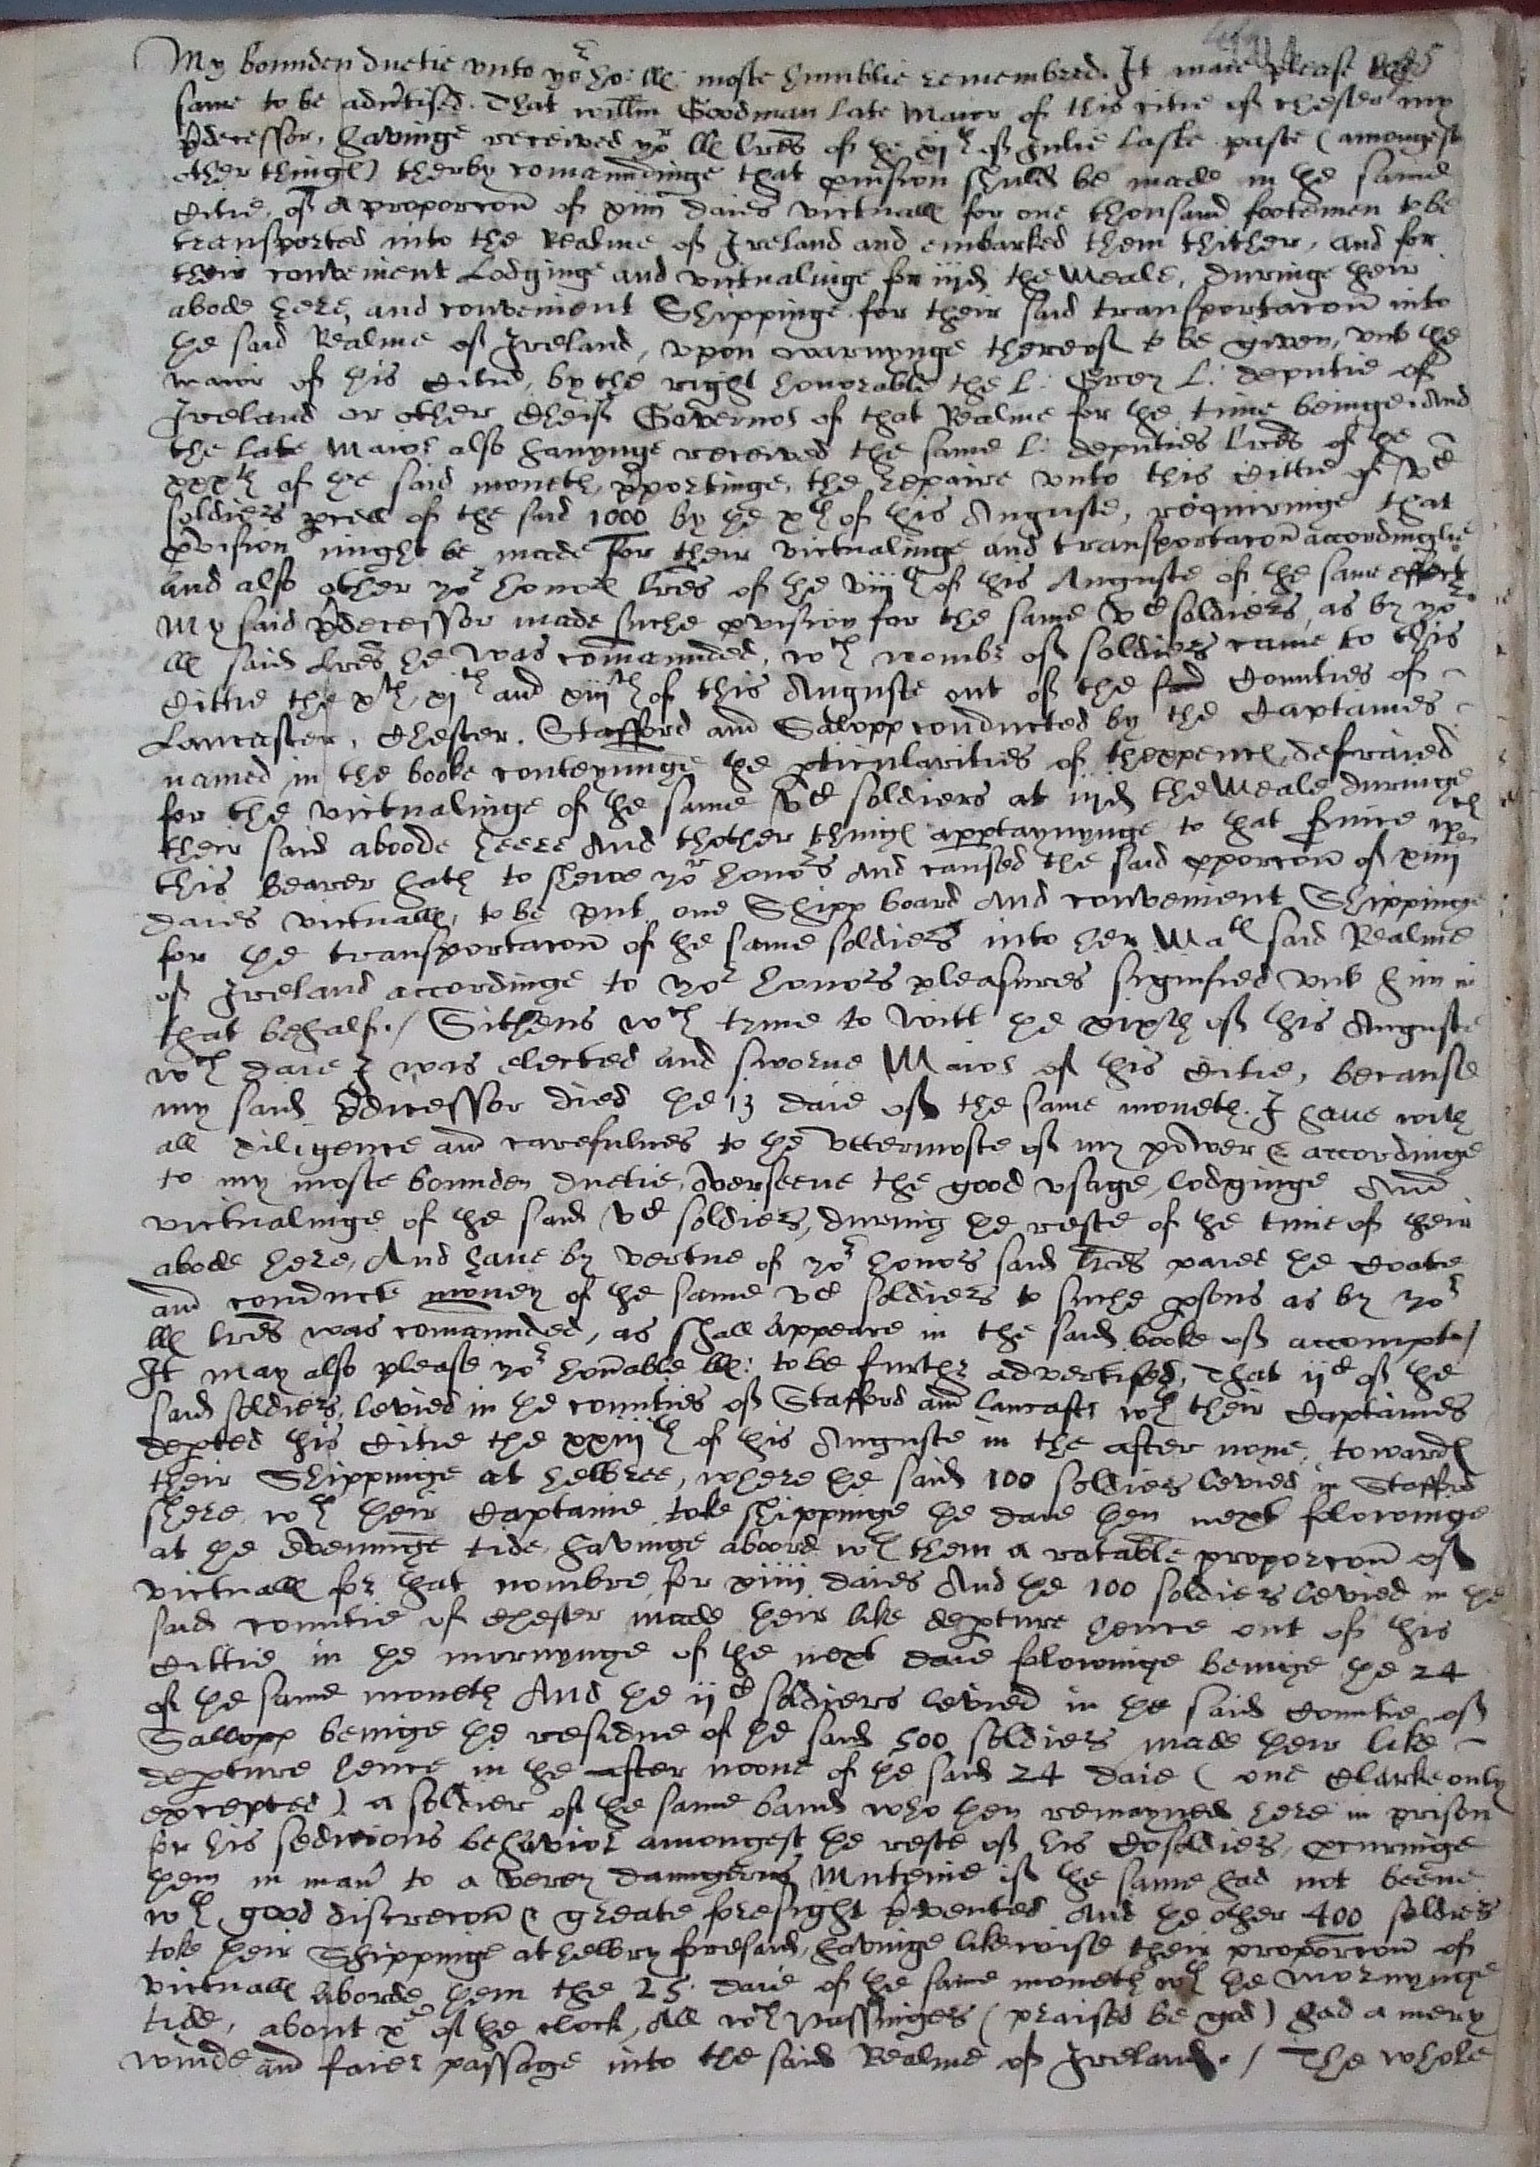 My bounden duetie vnto yor ho: ll: moste humblie remembred. It maie please
same to be adu'tised. That willm Goodman late Maior of this citie of Chester my
p'decessor, havinge received yor ll lres of the xjth of Julie laste paste (amongest
other thinges) therby comaundinge that p'vision shuld be made in the same
Citie, of a proporcon of xiiij daies victuall for one thousand footemen to be
transported into the Realme of Ireland and embarked them thither, and for
their convenient Lodginge and victualinge for iijd the Meale, duringe their
abode here, and convenient Shippinge for their said transportacon into
the said Realme of Ireland, vpon warnynge thereof to be given, vnto the
maior of this Citie, by the right honorable the L: Grey L: deputie of
Ireland or other Cheif Governor of that Realme for the time beinge. And
the late Maior also havynge received the same L: deputies lres of the
xxxth of the said moneth, p'portinge, the repaire vnto this Cittie of vC
soldiers p'cell of the said 1000 by the xth of this Auguste, requiringe that
p'vision might be made for their victualinge and transportacon accordinglie
and also other yor honors lres of the viijth of this Auguste of the same effect
My said p'decessor made suche p'vision for the same vC soldiers, as by yor
ll said lres he was comaunded, wch nombr of soldiers came to this
Cittie the xth, xjth and xiijth of this Auguste out of the said Counties of
Lancaster, Chester, Stafford and Salopp conducted by the Captaines
named in the booke conteyninge the p'ticularities of thexpences defraied
for the victualinge of the same vC soldiers at iijd the Meale duringe
their said aboode heere And thother thinges app'taynynge to that s'vice wch
this bearer hath to shewe yor honors And caused the said p'porcon of xiiij
daies victuall, to be put one Shipp board And convenient Shippinge
for the transportacon of the same soldiers into her Mats said Realme
of Ireland accordinge to yor honors pleasures signified vnto him in
that behalf./ Sithens wch tyme to witt the xixth of this Auguste
wch daie I was elected and sworne Maior of this Citie, because
my said p'dicessor died the 13 daie of the same moneth. I have with
all diligence and carefulnes to the vttermoste of my power & accordinge
to my moste bounden duetie, overseene the good vsage, lodginge And
victualinge of the said vC soldiers, during the reste of the time of their
abode here, And have by vertue of yor honors said lres paied the Coate
and conduct money of the same vC soldiers to suche p'sons as by yor
ll lres was comaunded, as shall appeare in the said booke of accompte/
It may also please yor honable ll: to be furthr advertised, That ijC of the
said soldiers, levied in the counties of Stafford and Lancastr wth their Captaines
dep'ted this Citie the xxiijth of this Auguste in the after none, towards
their Shippinge at helbree, where the said 100 soldiers levied in Stafford
shere wth their Captaine toke shippinge the daie then next folowinge
at the Eveninge tide, havinge aboord wth them a ratable proporcon of
victuall for that nombre for xiiij daies And the 100 soldiers levied in the
said countie of Chester made their like dep'ture hence out of this
Cittie in the mornynge of the next daie folowinge beinge the 24
of the same moneth And the ijC soldiers levied in the said Countie of
Sallopp beinge the residue of the said 500 soldiers made their like
dep'ture hence in the after noone of the said 24 daie (one Clarke only
excepted) a soldier of the same band who then remayned here in prison
for his sedicious behavior amongest the reste of his Cosoldiers, p'curinge
them in man' to a verey daungerus Mutenie if the same had not beene
wth good discrecon & greate foresight p'vented And the other 400 soldiers
toke their Shippinge at helbry foresaid, havinge likewise their proporcon of
victuall aborde them the 25 daie of the same moneth wth the mornynge
tide, about x of the clock, All wch passingers (praised be god) had a mery
winde and faier passage into the said Realme of Ireland./ The whole